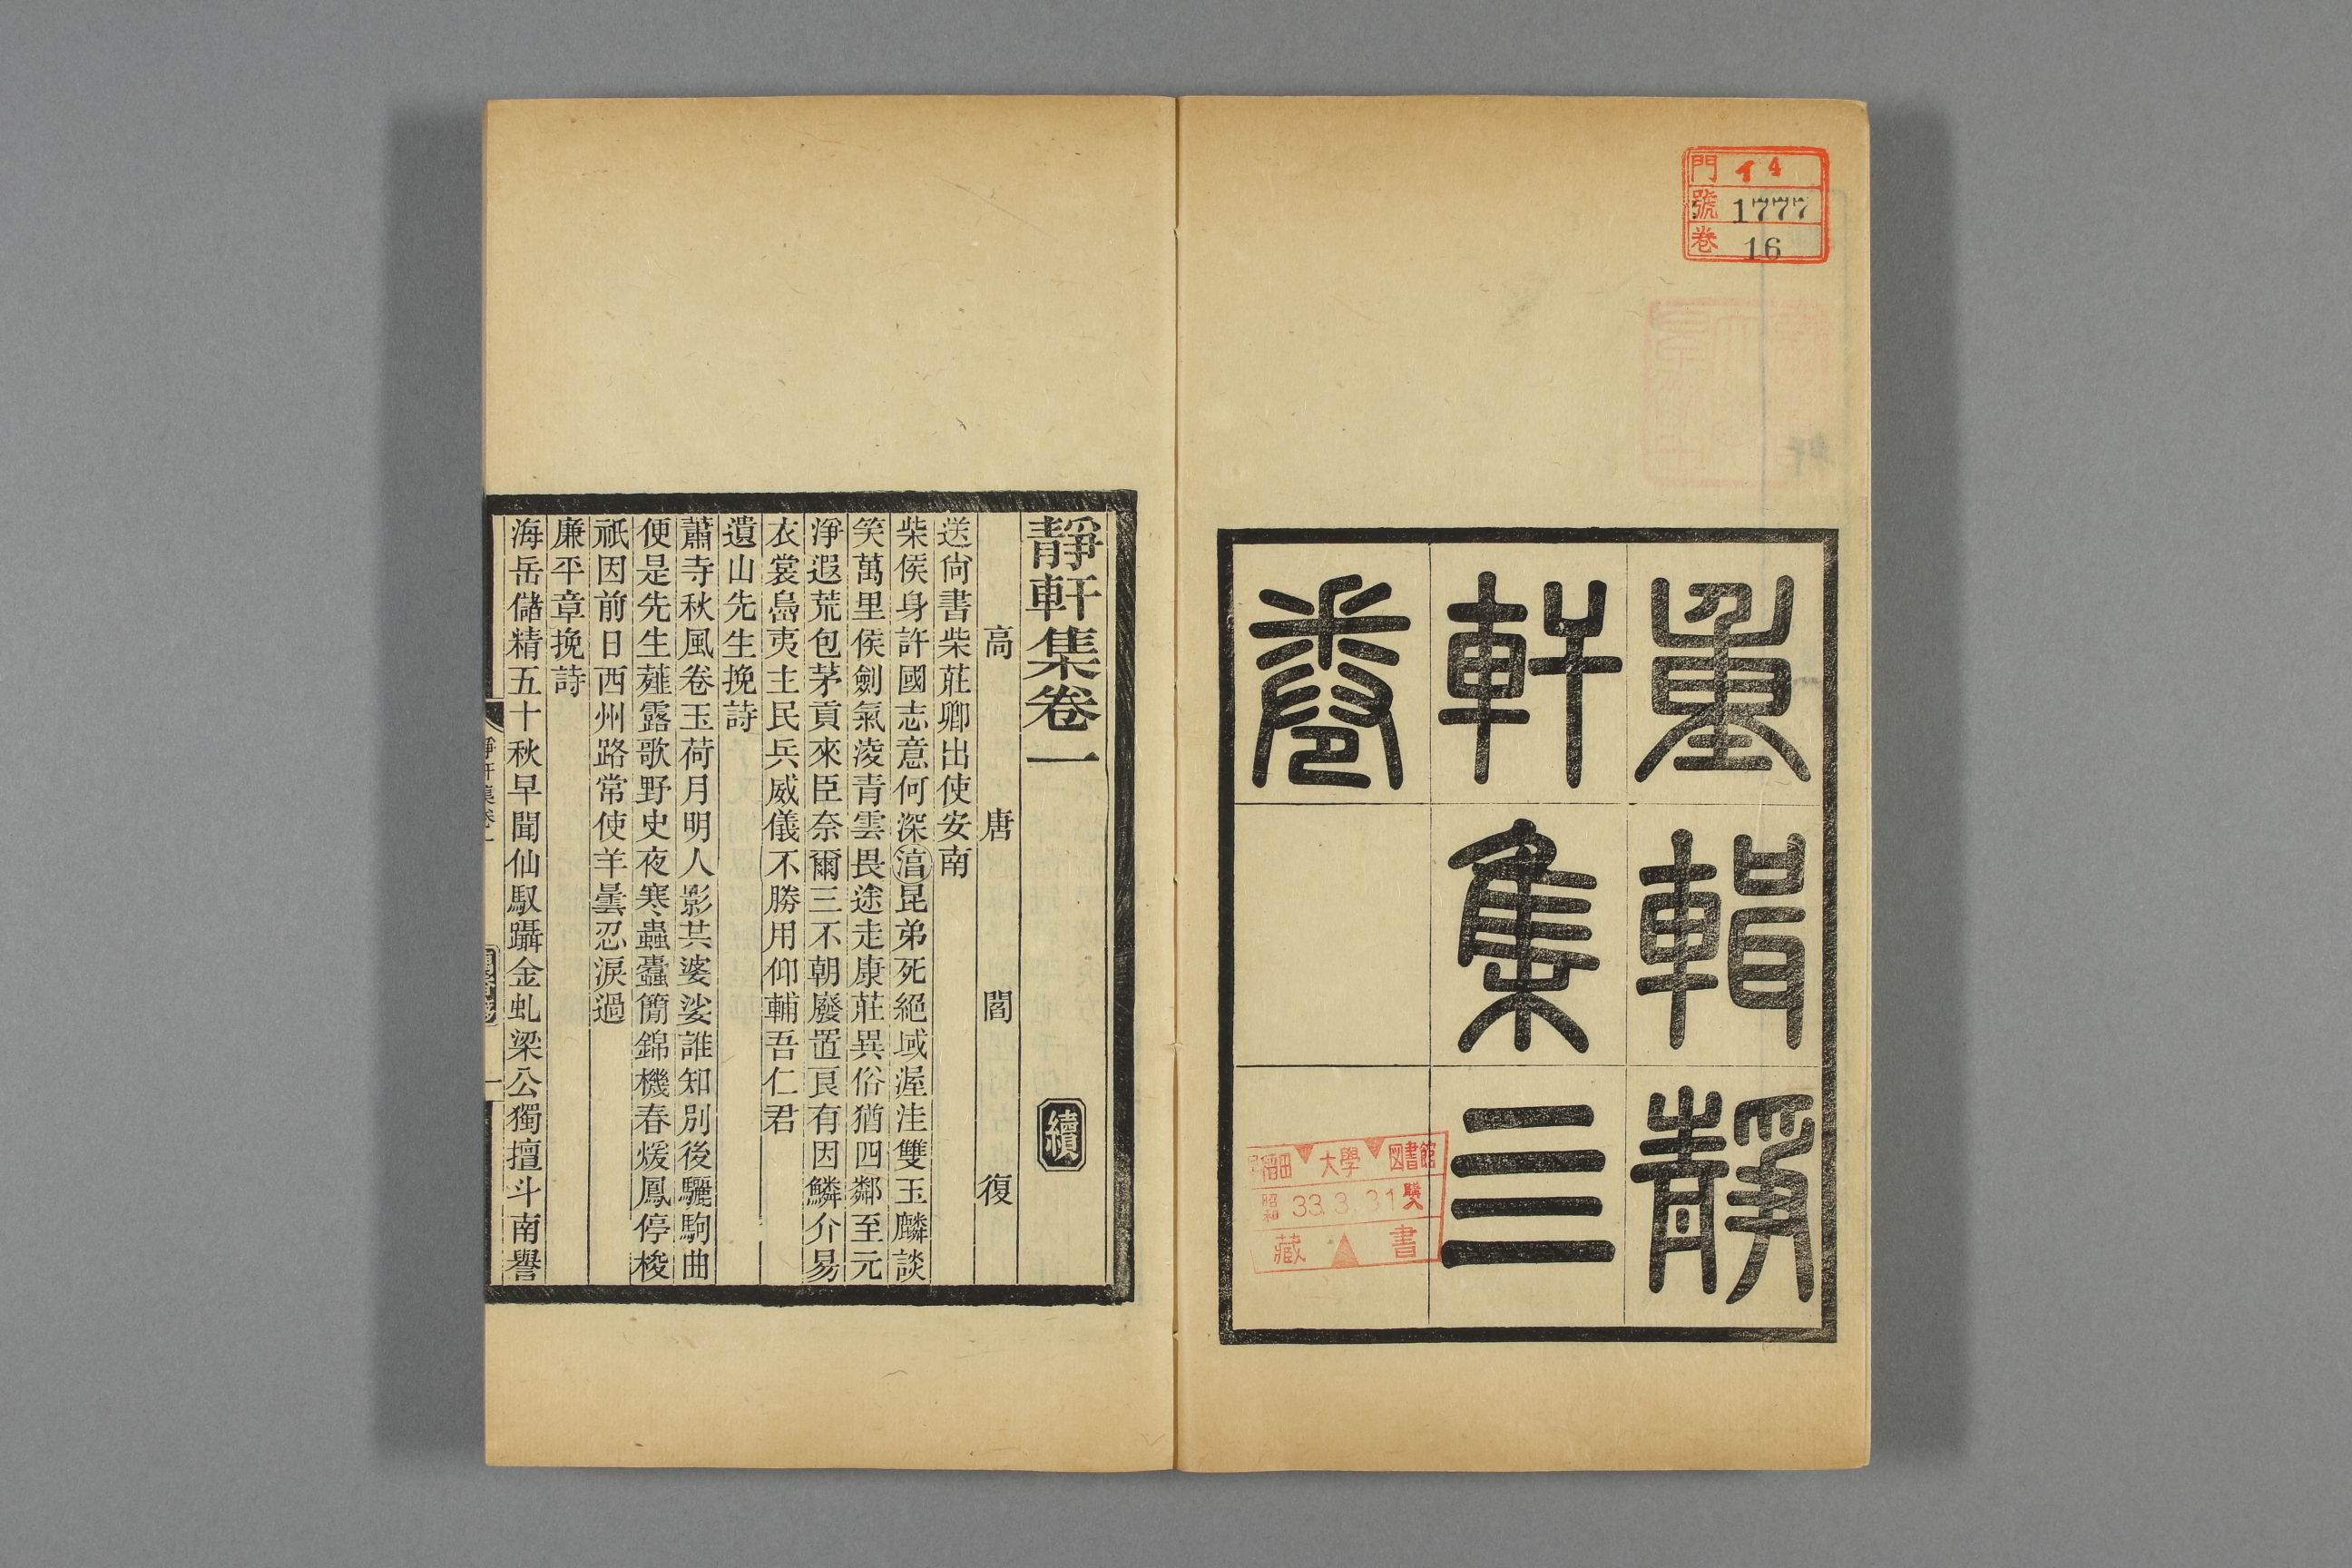 門 イ4
號 1777
卷 16
重輯靜
軒集亖
卷
稻田大學圖書館
昭和 33.3.31 購
藏書
靜軒集卷一 續
高唐閻復
送尙書柴莊卿出使安南
柴侯身許國志意何深湻昆弟死絕域渥洼雙玉麟談
笑萬里侯劍氣凌青雲畏途走康莊異俗猶四鄰至元
淨遐荒包茅貢來臣奈爾三不朝廢置良有因鱗介易
衣裳島夷主民兵威儀不勝用仰輔吾仁君
遺山先生挽詩
蕭寺秋風卷玉荷月明人影共婆娑誰知別後驪駒曲
便是先生薤露歌野史夜寒蟲蠹簡錦機春煖鳳停梭
祇因前日西州路常使羊曇忍淚過
廉平章挽詩
海岳儲精五十秋早聞仙馭躡金虬梁公獨擅斗南譽
靜軒集卷一
一